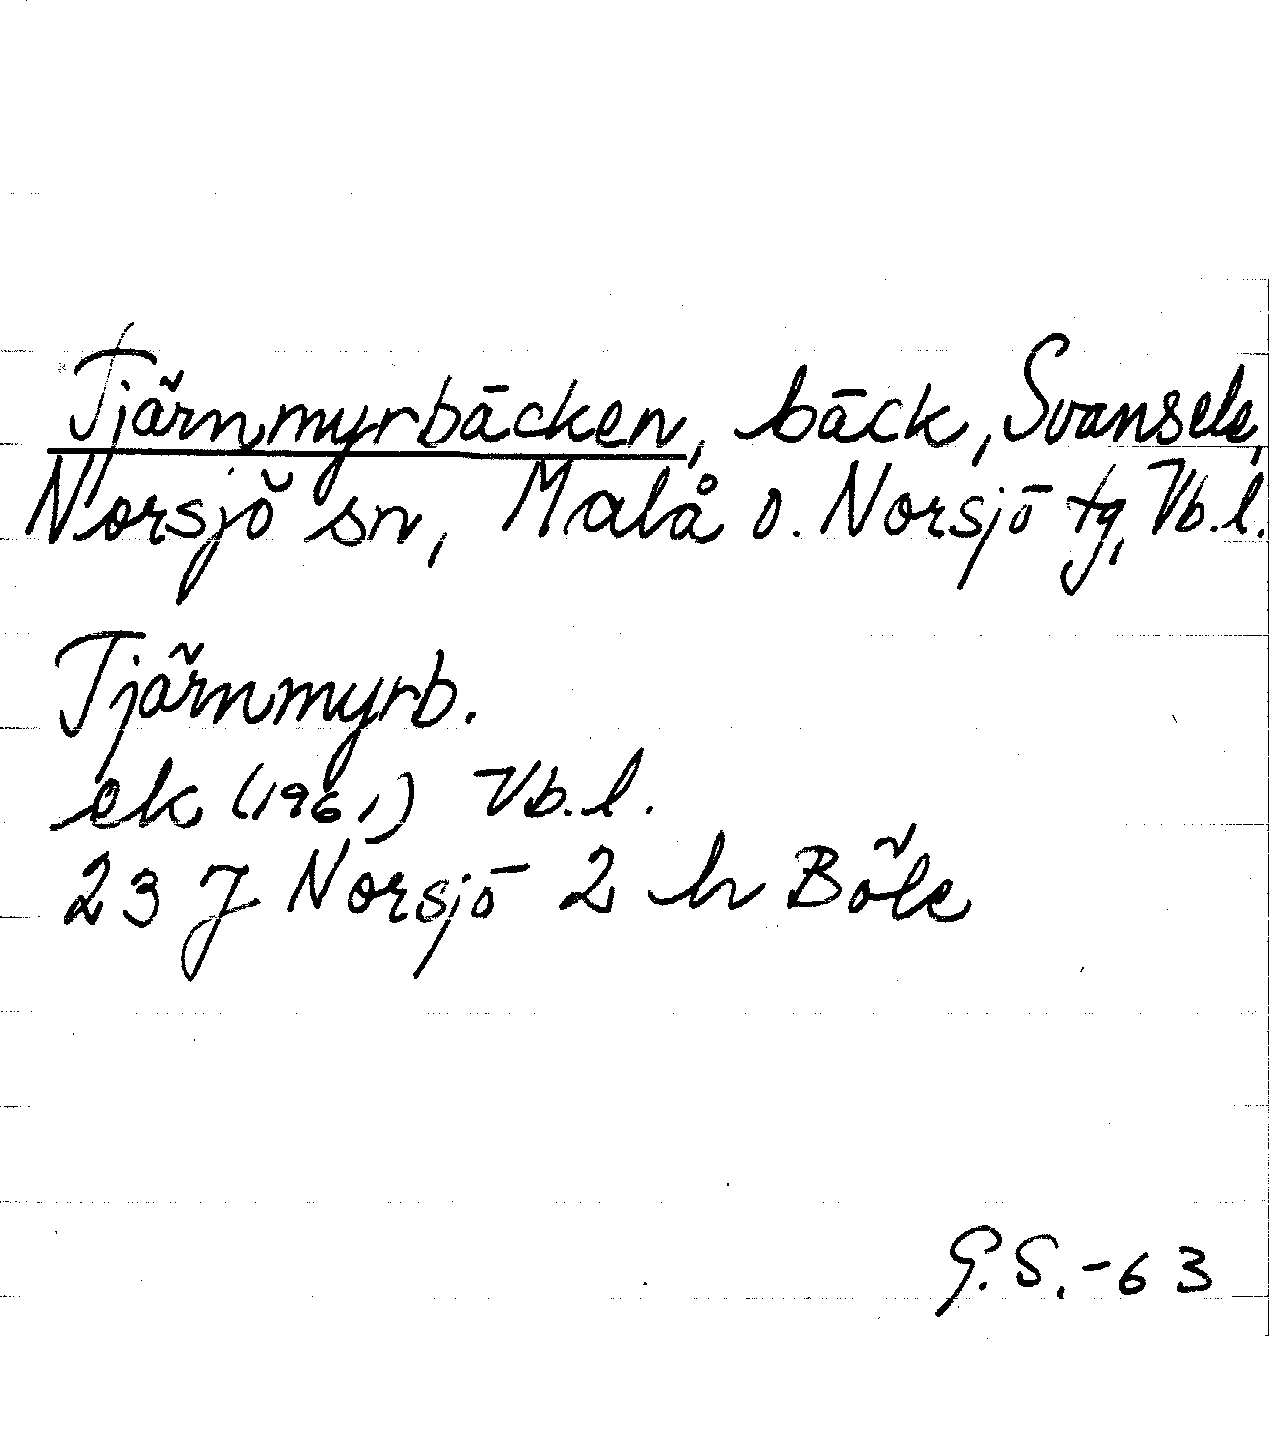 Tjärnmyrbäcken, bäck, Svansele,
Norsjö sn, Malå o. Norsjö tg, Vb.l.
Tjärnmyrb.
ek (1961) Vb.l.
23 J Norsjö 2 h Böle
G.S.-63